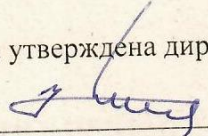 утверждена дир